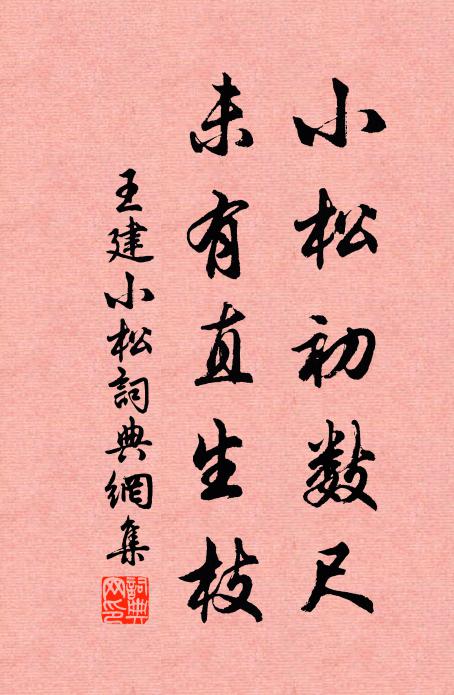 小松初数尺
未有直生枝
王建小松詞典網集
詞典网印